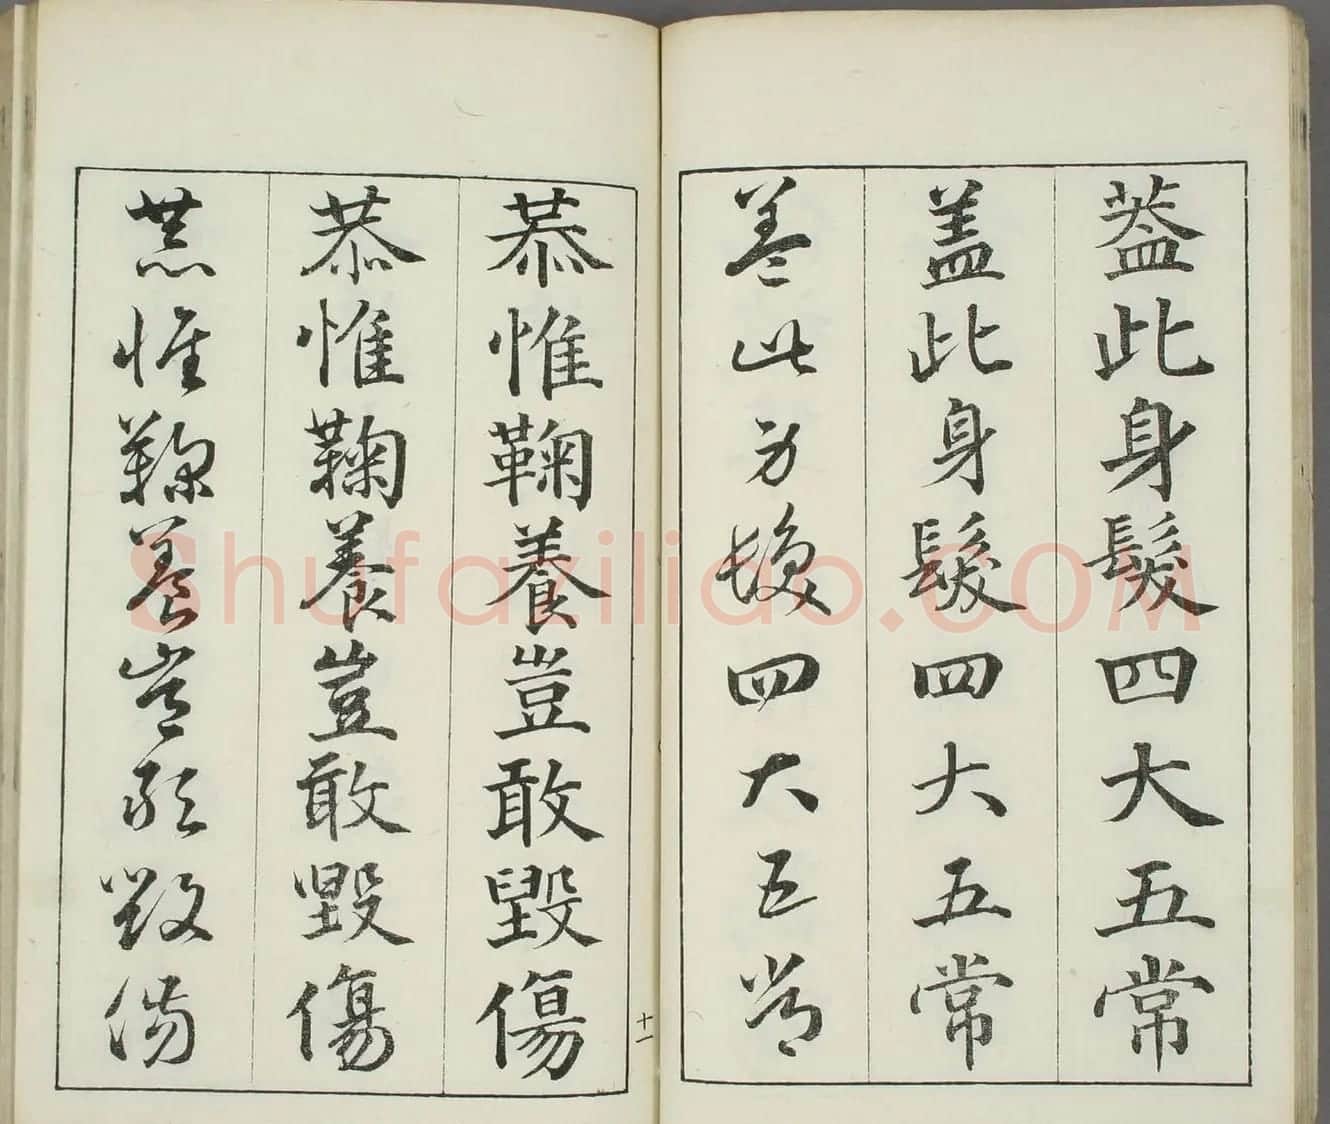 葢此身髮四大五常
盖此身髮四大五常
盖此身髮四大五常
恭惟鞠養豈敢毀傷
恭惟鞠養豈敢毀傷
恭惟鞠養豈敢毀傷
十一
Shufaziliao.COM